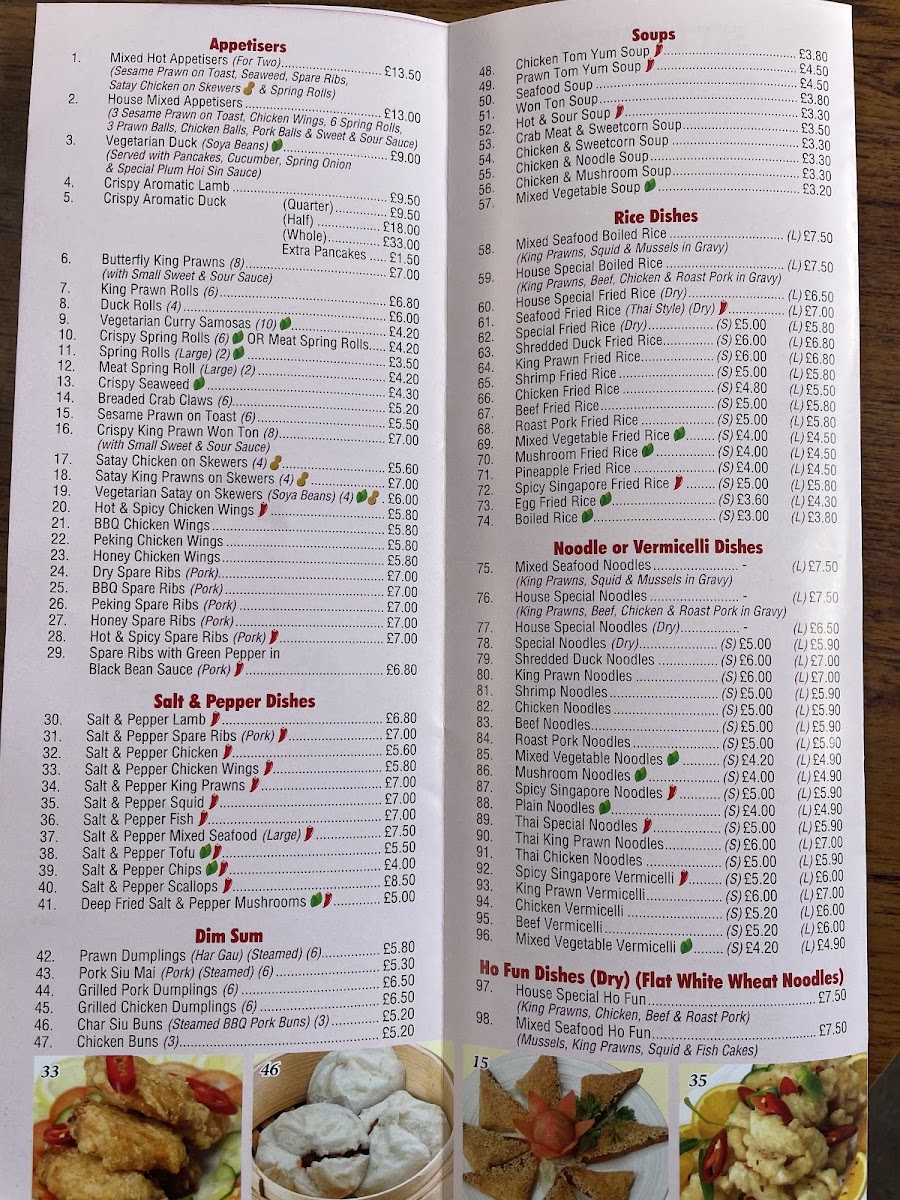 Appetisers
1. Mixed Hot Appetisers (For Two) £13.50
(Sesame Prawn on Toast, Seaweed, Spare Ribs,
Satay Chicken on Skewers & Spring Rolls)
2. House Mixed Appetisers £13.00
(3 Sesame Prawn on Toast, Chicken Wings, 6 Spring Rolls,
3 Prawn Balls, Chicken Balls, Pork Balls & Sweet & Sour Sauce)
3. Vegetarian Duck (Soya Beans) £9.00
(Served with Pancakes, Cucumber, Spring Onion
& Special Plum Hoi Sin Sauce)
4. Crispy Aromatic Lamb £9.50
5. Crispy Aromatic Duck (Quarter) £9.50
(Half) £18.00
(Whole) £33.00
Extra Pancakes £1.50
6. Butterfly King Prawns (8) £7.00
(with Small Sweet & Sour Sauce)
7. King Prawn Rolls (6) £6.80
8. Duck Rolls (4) £6.00
9. Vegetarian Curry Samosas (10) £4.20
10. Crispy Spring Rolls (6) OR Meat Spring Rolls £4.20
11. Spring Rolls (Large) (2) £3.50
12. Meat Spring Roll (Large) (2) £4.20
13. Crispy Seaweed £4.30
14. Breaded Crab Claws (6) £5.20
15. Sesame Prawn on Toast (6) £5.50
16. Crispy King Prawn Won Ton (8) £7.00
(with Small Sweet & Sour Sauce)
17. Satay Chicken on Skewers (4) £5.60
18. Satay King Prawns on Skewers (4) £7.00
19. Vegetarian Satay on Skewers (Soya Beans) (4) £6.00
20. Hot & Spicy Chicken Wings £5.80
21. BBQ Chicken Wings £5.80
22. Peking Chicken Wings £5.80
23. Honey Chicken Wings £5.80
24. Dry Spare Ribs (Pork) £7.00
25. BBQ Spare Ribs (Pork) £7.00
26. Peking Spare Ribs (Pork) £7.00
27. Honey Spare Ribs (Pork) £7.00
28. Hot & Spicy Spare Ribs (Pork) £7.00
29. Spare Ribs with Green Pepper in
Black Bean Sauce (Pork) £6.80
Salt & Pepper Dishes
30. Salt & Pepper Lamb £6.80
31. Salt & Pepper Spare Ribs (Pork) £7.00
32. Salt & Pepper Chicken £5.60
33. Salt & Pepper Chicken Wings £5.80
34. Salt & Pepper King Prawns £7.00
35. Salt & Pepper Squid £7.00
36. Salt & Pepper Fish £7.00
37. Salt & Pepper Mixed Seafood (Large) £7.50
38. Salt & Pepper Tofu £5.50
39. Salt & Pepper Chips £4.00
40. Salt & Pepper Scallops £8.50
41. Deep Fried Salt & Pepper Mushrooms £5.00
Dim Sum
42. Prawn Dumplings (Har Gau) (Steamed) (6) £5.80
43. Pork Siu Mai (Pork) (Steamed) (6) £5.30
44. Grilled Pork Dumplings (6) £6.50
45. Grilled Chicken Dumplings (6) £6.50
46. Char Siu Buns (Steamed BBQ Pork Buns) (3) £5.20
47. Chicken Buns (3) £5.20
33
46
Soups
48. Chicken Tom Yum Soup £3.80
49. Prawn Tom Yum Soup £4.50
50. Seafood Soup £4.50
51. Won Ton Soup £3.80
52. Hot & Sour Soup £3.30
53. Crab Meat & Sweetcorn Soup £3.50
54. Chicken & Sweetcorn Soup £3.30
55. Chicken & Noodle Soup £3.30
56. Chicken & Mushroom Soup £3.30
57. Mixed Vegetable Soup £3.20
Rice Dishes
58. Mixed Seafood Boiled Rice (L) £7.50
(King Prawns, Squid & Mussels in Gravy)
59. House Special Boiled Rice (L) £7.50
(King Prawns, Beef, Chicken & Roast Pork in Gravy)
60. House Special Fried Rice (Dry) (L) £6.50
61. Seafood Fried Rice (Thai Style) (Dry) (L) £7.00
62. Special Fried Rice (Dry) (S) £5.00 (L) £5.80
63. Shredded Duck Fried Rice (S) £6.00 (L) £6.80
64. King Prawn Fried Rice (S) £6.00 (L) £6.80
65. Shrimp Fried Rice (S) £5.00 (L) £5.80
66. Chicken Fried Rice (S) £4.80 (L) £5.50
67. Beef Fried Rice (S) £5.00 (L) £5.80
68. Roast Pork Fried Rice (S) £5.00 (L) £5.80
69. Mixed Vegetable Fried Rice (S) £4.00 (L) £4.50
70. Mushroom Fried Rice (S) £4.00 (L) £4.50
71. Pineapple Fried Rice (S) £4.00 (L) £4.50
72. Spicy Singapore Fried Rice (S) £5.00 (L) £5.80
73. Egg Fried Rice (S) £3.60 (L) £4.30
74. Boiled Rice (S) £3.00 (L) £3.80
Noodle or Vermicelli Dishes
75. Mixed Seafood Noodles - (L) £7.50
(King Prawns, Squid & Mussels in Gravy)
76. House Special Noodles - (L) £7.50
(King Prawns, Beef, Chicken & Roast Pork in Gravy)
77. House Special Noodles (Dry) - (L) £6.50
78. Special Noodles (Dry) (S) £5.00 (L) £5.90
79. Shredded Duck Noodles (S) £6.00 (L) £7.00
80. King Prawn Noodles (S) £6.00 (L) £7.00
81. Shrimp Noodles (S) £5.00 (L) £5.90
82. Chicken Noodles (S) £5.00 (L) £5.90
83. Beef Noodles (S) £5.00 (L) £5.90
84. Roast Pork Noodles (S) £5.00 (L) £5.90
85. Mixed Vegetable Noodles (S) £4.20 (L) £4.90
86. Mushroom Noodles (S) £4.00 (L) £4.90
87. Spicy Singapore Noodles (S) £5.00 (L) £5.90
88. Plain Noodles (S) £4.00 (L) £4.90
89. Thai Special Noodles (S) £5.00 (L) £5.90
90. Thai King Prawn Noodles (S) £6.00 (L) £7.00
91. Thai Chicken Noodles (S) £5.00 (L) £5.90
92. Spicy Singapore Vermicelli (S) £5.20 (L) £6.00
93. King Prawn Vermicelli (S) £6.00 (L) £7.00
94. Chicken Vermicelli (S) £5.20 (L) £6.00
95. Beef Vermicelli (S) £5.20 (L) £6.00
96. Mixed Vegetable Vermicelli (S) £4.20 (L) £4.90
Ho Fun Dishes (Dry) (Flat White Wheat Noodles)
97. House Special Ho Fun £7.50
(King Prawns, Chicken, Beef & Roast Pork)
98. Mixed Seafood Ho Fun £7.50
(Mussels, King Prawns, Squid & Fish Cakes)
15
35